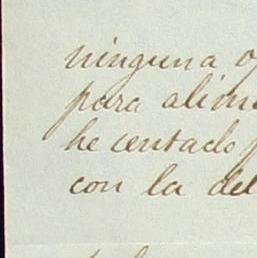 ninguna o
para alim
he contado p
con la del